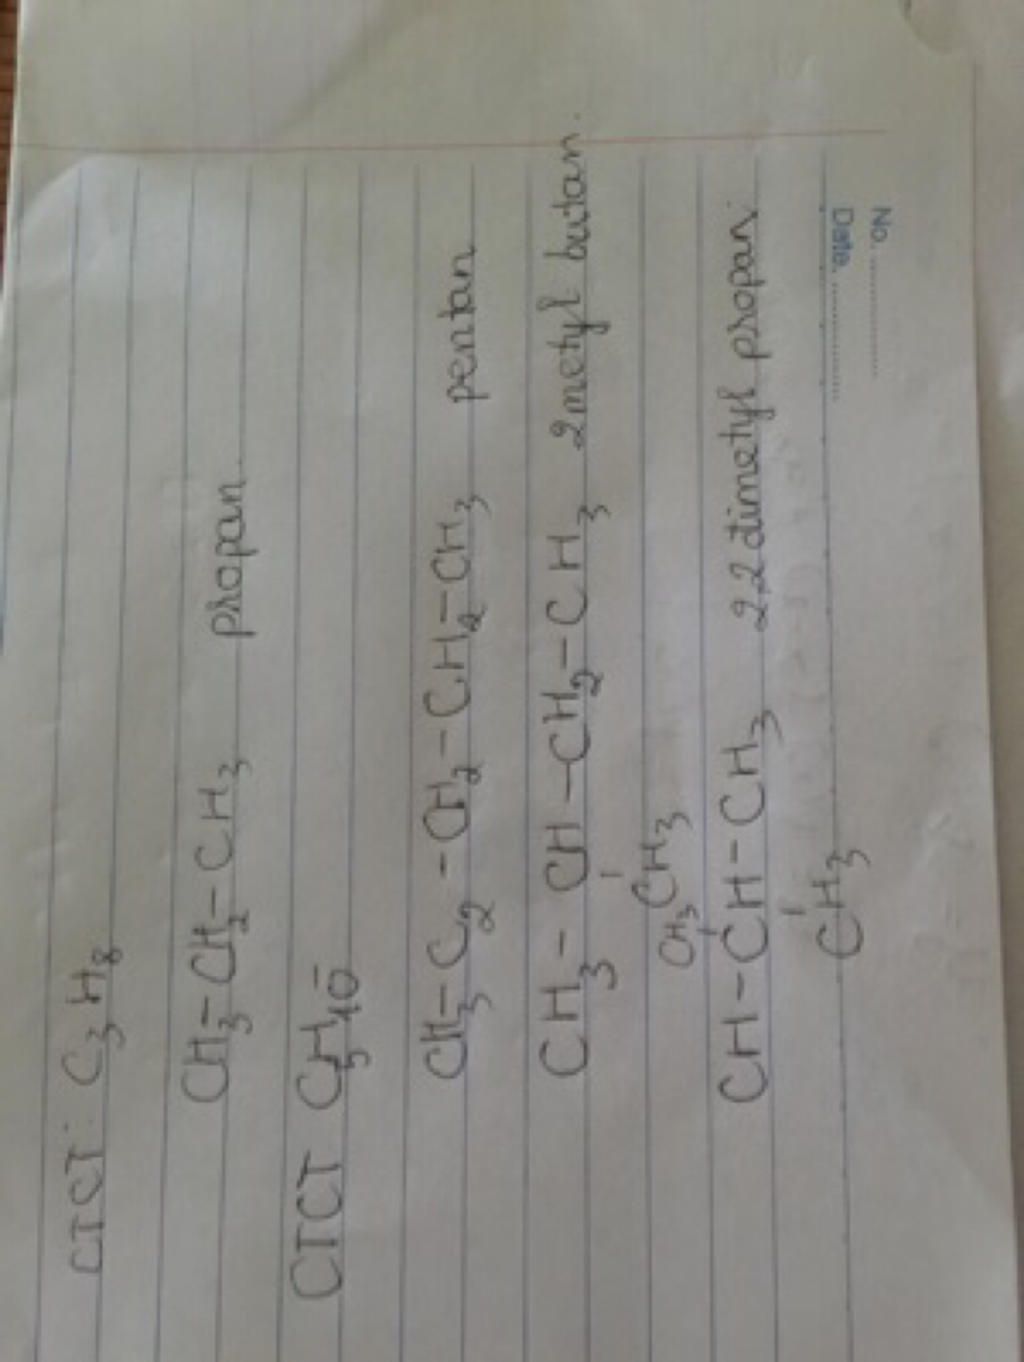 No. ................
Date. ................
CTCT: C₃H₈
CH₃-CH₂-CH₃ propan
CTCT C₅H₁₀
CH₃-C₂-CH₂-CH₂-CH₃ pentan
CH₃-CH-CH₂-CH₃ 2metyl butan.
CH₃
CH₃
CH-CH-CH₃ 2,2dimetyl propan.
CH₃